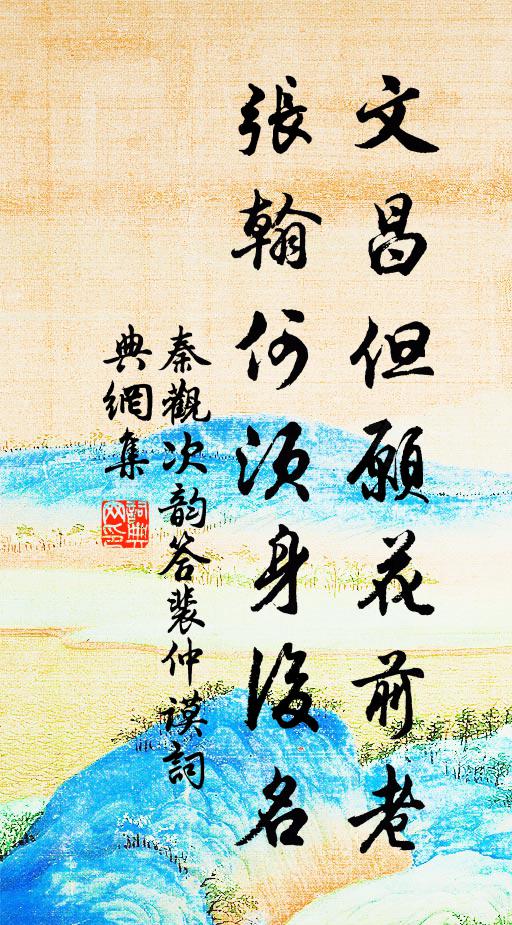 文昌但願花前老
張翰何須身後名
秦觀次韵答裴仲謨詞
典網集
詞典
网印